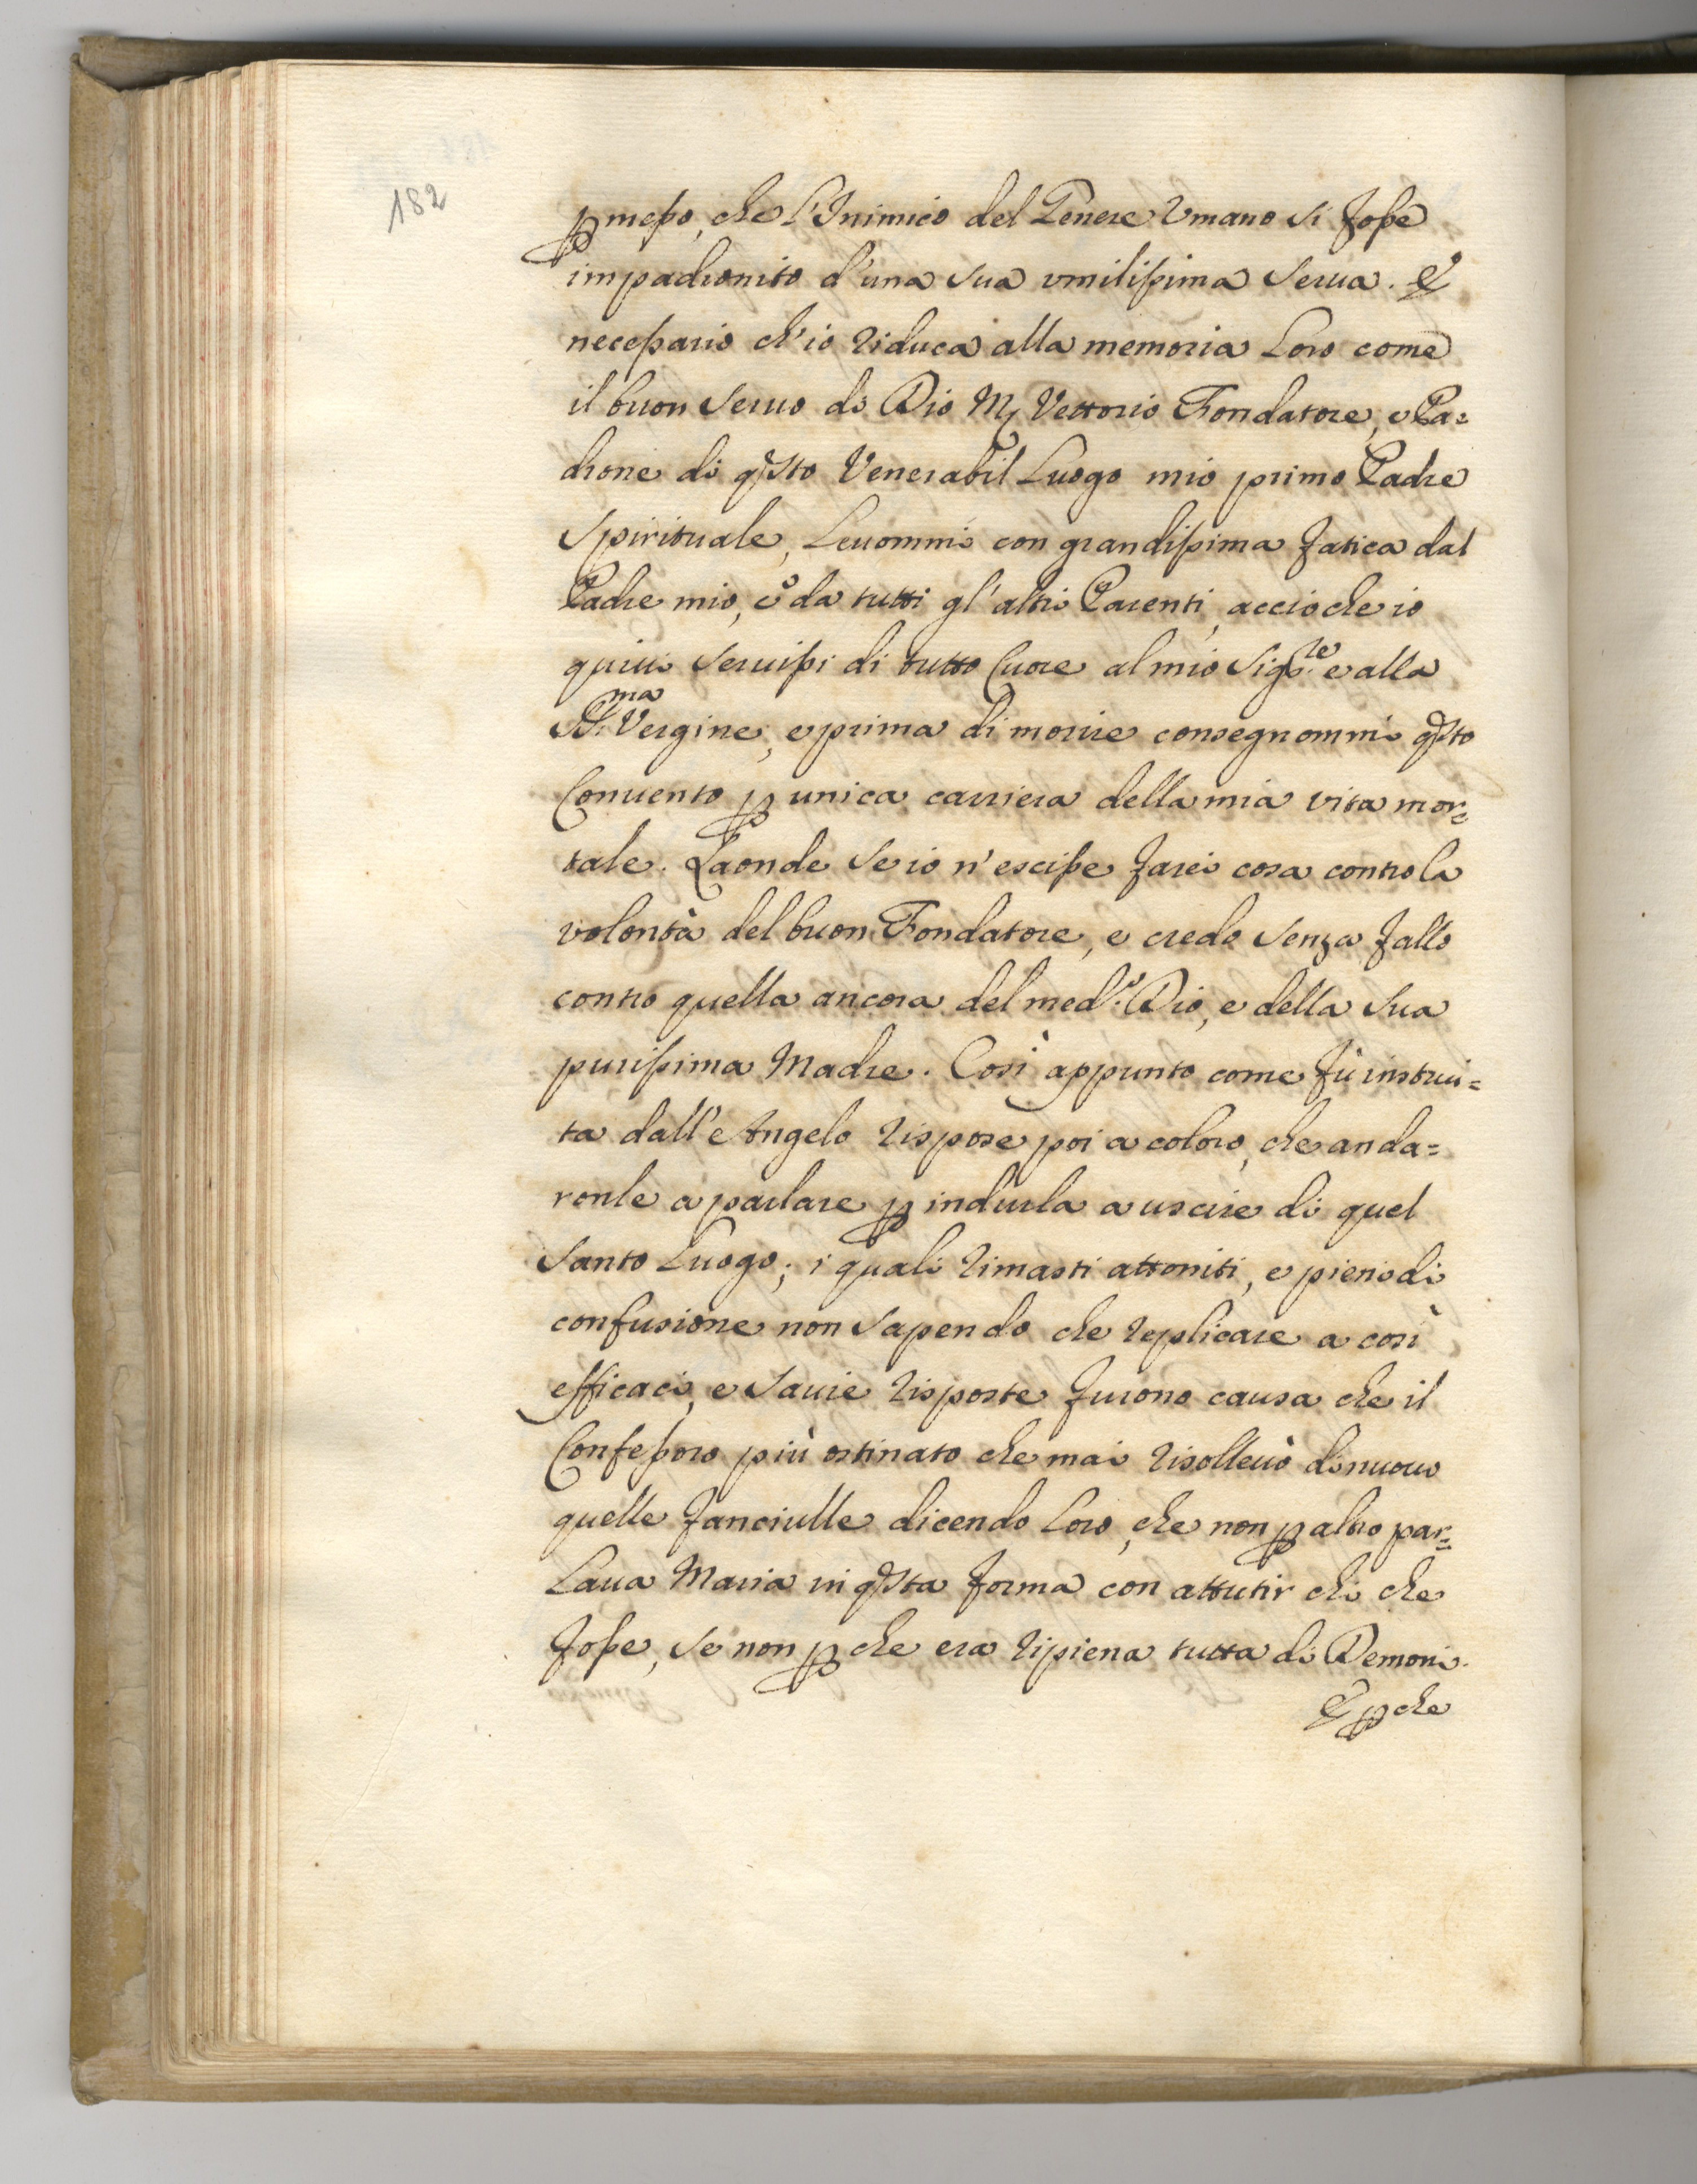 182
ꝑmesso, che l'Inimico del Genere Vmano si fosse
impadronito d'una sua vmilissima Serua. È
necessario ch'io riduca alla memoria Loro come
il buon Seruo di Dio M. Vettorio Fondatore, e Pa=
drone di qsto Venerabil Luogo mio primo Padre
Spirituale, Leuommi con grandissima fatica dal
Padre mio, e da tutti gl'altri Parenti, acciò che io
quiui Seruissi di tutto Cuore al mio Sig.re e alla
SS.ma Vergine, e prima di morire consegnommi qsto
Conuento ꝑ unica carriera della mia vita mor=
tale. Laonde Se io n'escisse farei cosa contro la
volontà del buon Fondatore, e credo Senza fallo
contro quella ancora del med.o Dio, e della Sua
purissima Madre. Così appunto come fù instrui=
ta dall'Angelo rispose poi a coloro, che anda=
ronle a parlare ꝑ indurla a uscire di quel
Santo Luogo; i quali rimasti attoniti, e pieni di
confusione non Sapendo che replicare a così
efficaci, e Sauie risposte furono causa che il
Confessoro più ostinato che mai risolleuò di nuouo
quelle fanciulle dicendo Loro, che non ꝑ altro par=
Laua Maria in qsta forma con attutir chi che
fosse, Se non ꝑche era ripiena tutta di Demoni.
E ꝑche